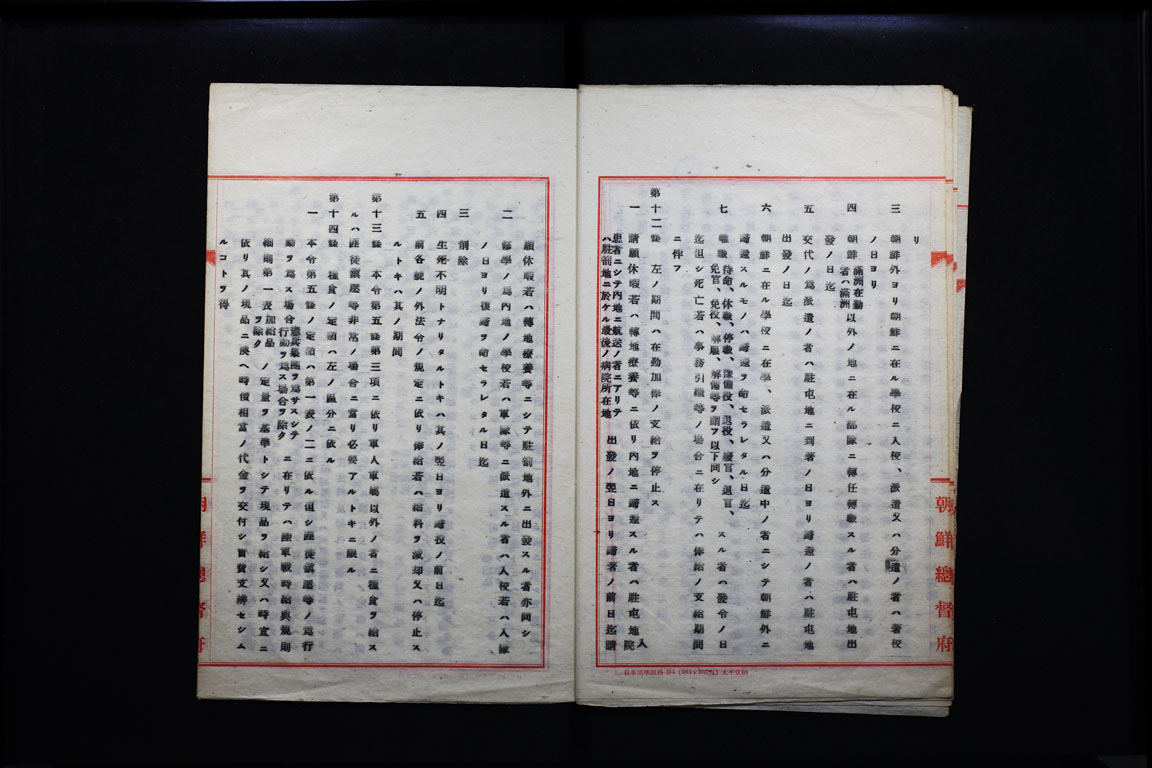 リ
三 朝鮮外ヨリ朝鮮ニ在ル學校ニ入校、派遣又ハ分遣ノ者ハ著校
ノ日ヨリ
四 朝鮮 滿洲在勤者ハ滿洲 以外ノ地ニ在ル部隊ニ轉任轉職スル者ハ駐屯地出
發ノ日迄
五 交代ノ爲派遣ノ者ハ駐屯地ニ到著ノ日ヨリ歸還ノ者ハ駐屯地
出發ノ日迄
六 朝鮮ニ在ル學校ニ在學、派遣又ハ分遣中ノ者ニシテ朝鮮外ニ
歸還スルモノハ歸還ヲ命セラレタル日迄
七 離職 待命、休職、停職、豫備役、退役、廢官、退官、免官、免役、等ヲ謂フ以下同シ スル者ハ發令ノ日
迄但シ死亡若ハ事務引繼等ノ場合ニ在リテハ俸給ノ支給期間
ニ伴フ
第十二條 左ノ期間ハ在勤加俸ノ支給ヲ停止ス
一 請願休暇若ハ轉地療養等ニ依リ內地ニ歸還スル者ハ駐屯地 入院
患者ニシテ內地ニ航送ノ者ニアリテ
ハ駐箚地ニ於ケル最後ノ病院所在地 出發ノ翌日ヨリ歸著ノ前日迄請
願休暇若ハ轉地療養等ニシテ駐箚地外ニ出發スル者亦同シ
二 修學ノ爲內地ノ學校若ハ軍隊等ニ派遣スル者ハ入校若ハ入隊
ノ日ヨリ復歸ヲ命セラレタル日迄
三 削除
四 生死不明トナリタルトキハ其ノ翌日ヨリ歸投ノ前日迄
五 前各號ノ外法令ノ規定ニ依リ俸給若ハ給料ヲ減却又ハ停止ス
ルトキハ其ノ期間
第十三條 本令第五條第三項ニ依リ軍人軍屬以外ノ者ニ糧食ヲ給ス
ルハ匪徒鎭壓等非常ノ場合ニ當リ必要アルトキニ限ル
第十四條 糧食ノ定額ハ左ノ區分ニ依ル
一 本令第五條ノ定額ハ第一表ノ二ニ依ル但シ匪徒鎭壓等ノ爲行
動ヲ爲ス場合 集團ヲ爲サスシテ行動ヲ爲ス場合ヲ除ク ニ在リテハ陸軍戰時給與規則
細則第一表 加給品ヲ除ク ノ定量ヲ基準トシテ現品ヲ給シ又ハ時宜ニ
依リ其ノ現品ニ換ヘ時價相當ノ代金ヲ交付シ買賣支辨セシム
ルコトヲ得
朝鮮總督府
朝鮮總督府